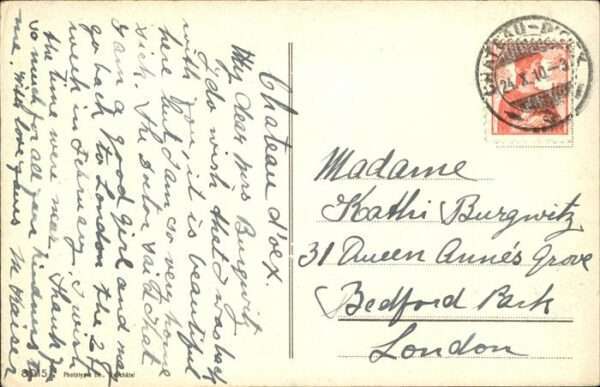 Chateau d'oex.
My dear Mrs Burgwitz
I do wish that I was back
with you, it is beautiful
here but I am so very home
sick. The doctor said that
I am a good girl and may
go back to London the 2nd
week in February. I wish
the time were near. Thank you
so much for all your kindness to
me. With love yours M Kaiser
CHATEAU-D'OEX
24.X.10-3
Madame
Kathi Burgwitz
31 Queen Anne's Grove
Bedford Park
London
Phototypie Co., Neuchâtel